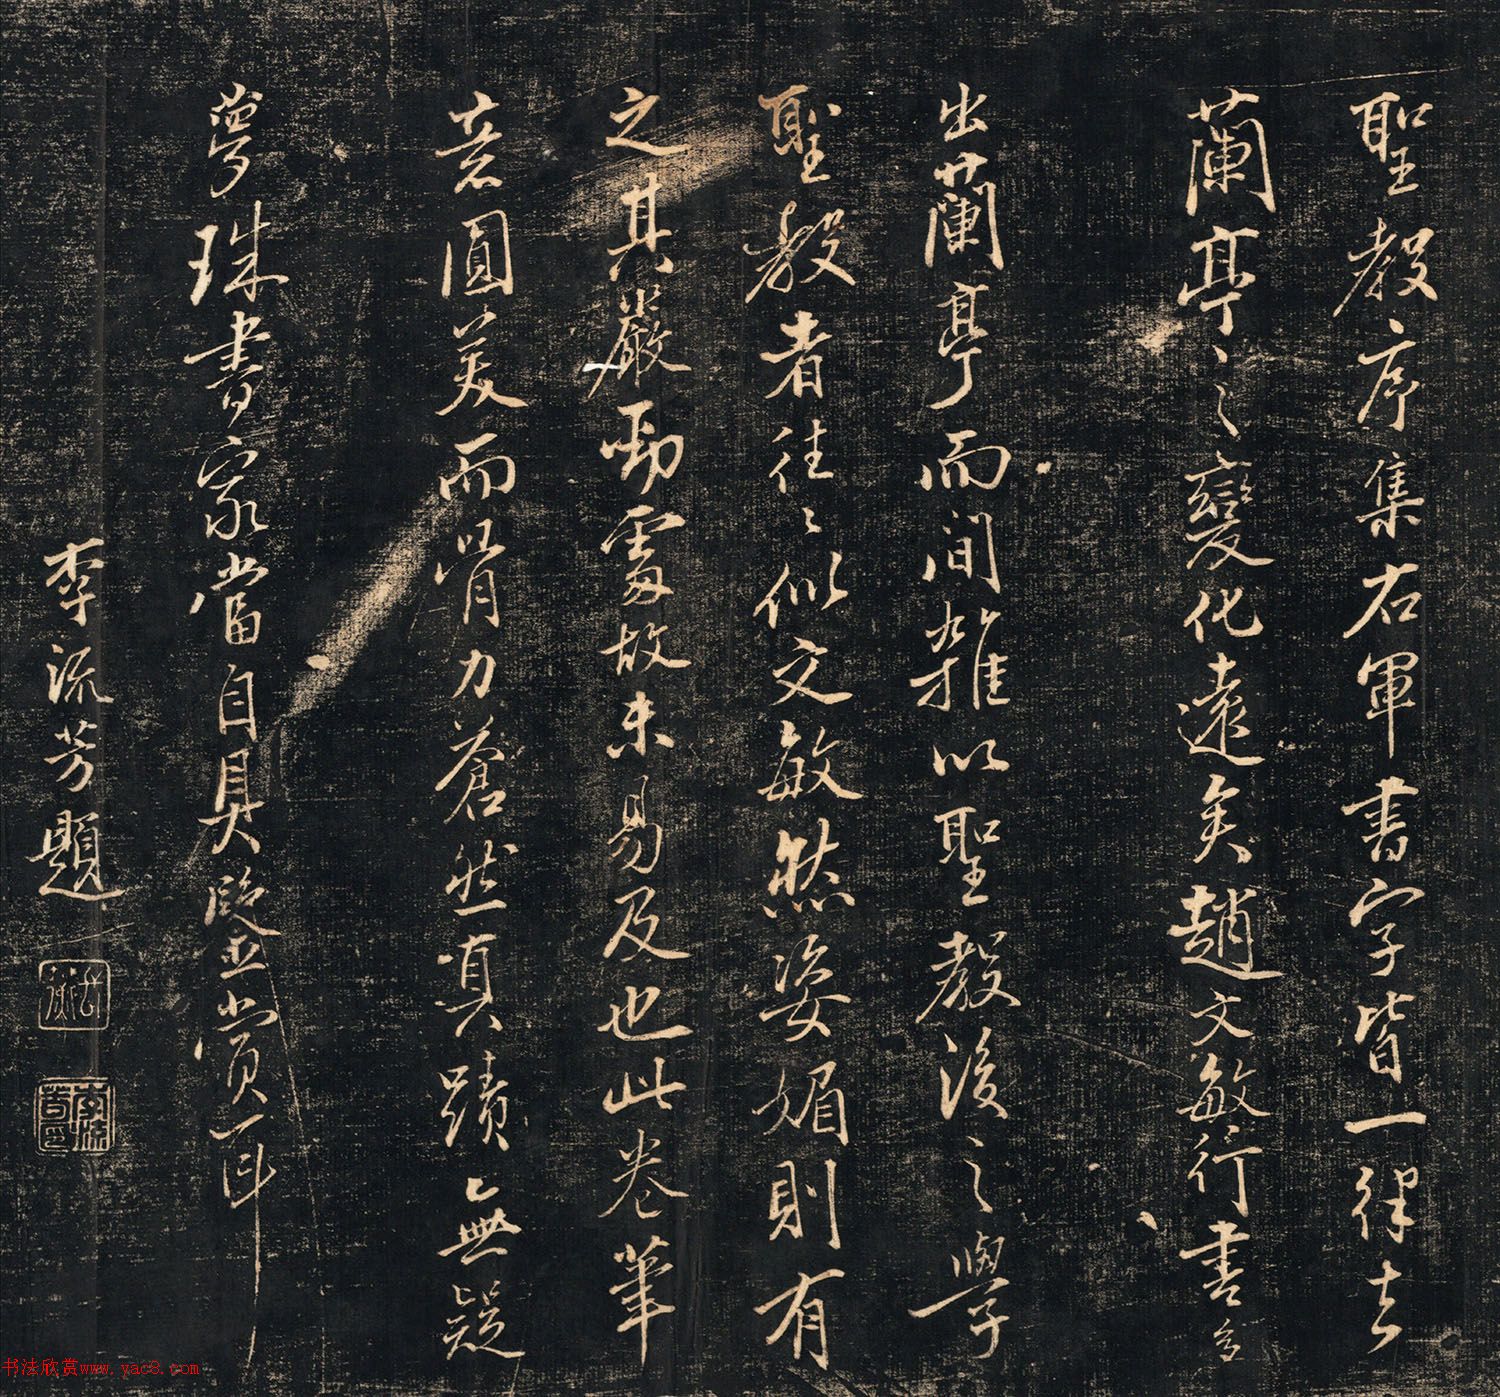 聖教序集右軍書字皆一律去
蘭亭之變化遠矣趙文敏行書全
出蘭亭而間雜以聖教後之學
聖教者往〻似文敏然姿媚則有
之其嚴勁處故未易及也此卷筆
意圓美而以骨力蒼然真蹟無疑
夢珠書家當自具鑒賞耳
李流芳題
书法欣赏www.yac8.com